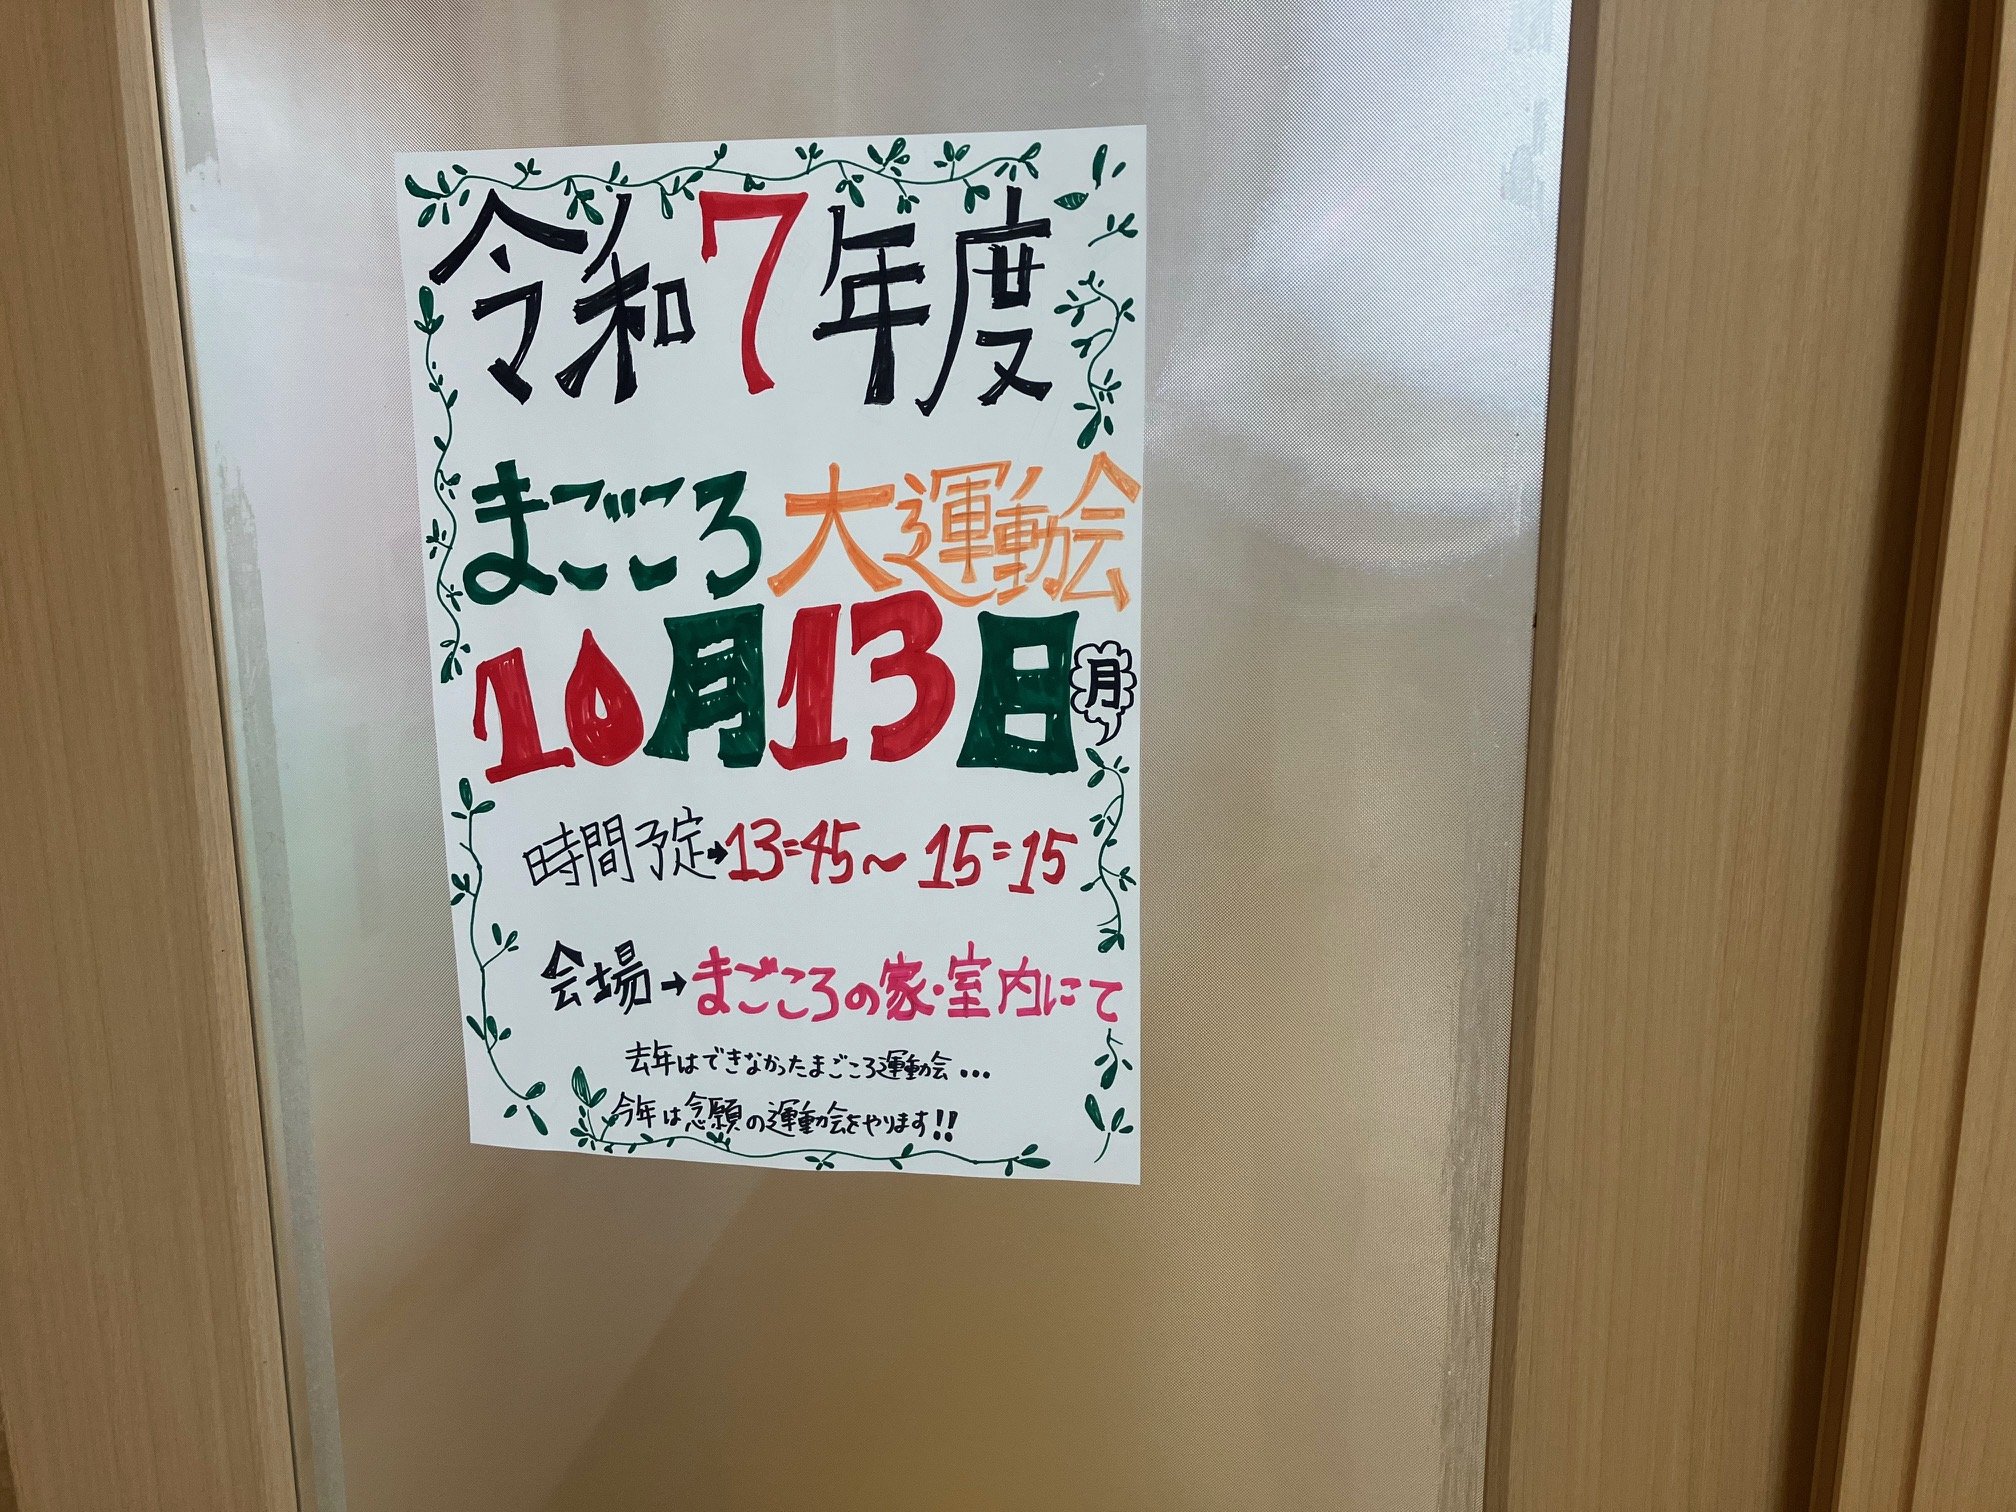 令和7年度
まごころ大運動会
10月13日(月)
時間予定→13:45～15:15
会場→まごころの家・室内にて
去年はできなかったまごころ運動会...
今年は念願の運動会をやります!!